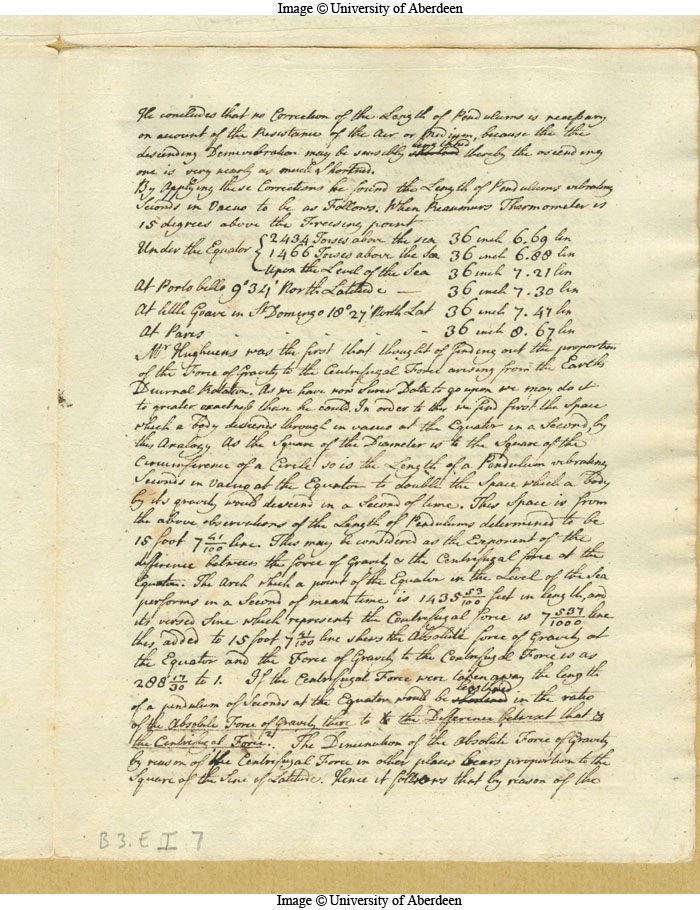 Image © University of Aberdeen
He concludes that no Correction of the Length of Pendulums is necessary
on account of the Resistance of the Air or Medium, because the
descending Demivibration may be sensibly shortned lengthned thereby the ascending
one is very nearly as much Shortned.
By Applying these Corrections he found the Length of Pendulums vibrating
Seconds in Vacuo to be as Follows. When Reaumurs Thermometer is
15 degrees above the Freesing point
Under the Equator { 2434 Toises above the sea 36 inch 6.69 lin
1466 Toises above the Sea 36 inch 6.88 lin
Upon the Level of the Sea 36 inch 7.21 lin
At Porto bello 9°34' North Latitude — 36 inch 7.30 lin
At little Goave in St Domingo 18°27' North Lat 36 inch 7.47 lin
At Paris . . . . 36 inch 8.67 lin
Mr Hughuens was the first that thought of finding out the proportion
of the Force of Gravity to the Centrifugal Force arising from the Earths
Diurnal Rotation. As we have now Surer Data to go upon we may do it
to greater exactness than he could. In order to this we find first the Space
which a body descends through in vacuo at the Equator in a Second, by
this Analogy As the Square of the Diameter is to the Square of the
Circumference of a Circle so is the Length of a Pendulum vibrating
Seconds in Vacuo at the Equator to double the Space which a Body
by its gravity would descend in a Second of time. This Space is from
the above observations of the Length of Pendulums determined to be
15 foot 7 21/100 line. This may be considered as the Exponent of the
difference betwixt the force of Gravity & the Centrifugal force at the
Equator. The Arch which a point of the Equator in the Level of the Sea
performs in a Second of mean time is 1435 53/100 feet in length, and
its versed Sine which represents the Centrifugal force is 7 537/1000 line
this added to 15 foot 7 21/100 line shews the Absolute force of Gravity at
the Equator and the Force of Gravity to the Centrifugal Force is as
288 17/30 to 1. If the Centrifugal Force were taken away the length
of a pendulum of Seconds at the Equator would be shortned lengthned in the ratio
of the Absolute Force of Gravity there to the Difference betwixt that &
the Centrifugal Force. The Diminution of the Absolute Force of Gravity
by reason of the Centrifugal Force in other places bears proportion to the
Square of the Sine of Latitude. Hence it follows that by reason of the
B 3. E I 7
Image © University of Aberdeen